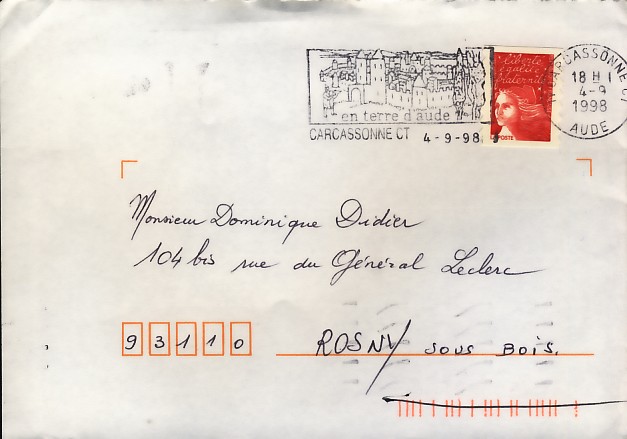 Liberté
égalité
Fraternité
LA POSTE
CARCASSONNE CT
18 H
4-9
1998
AUDE
en terre d'aude
CARCASSONNE CT 4-9-98
Monsieur Dominique Didier
104 bis rue du Général Leclerc
93110 ROSNY SOUS BOIS.